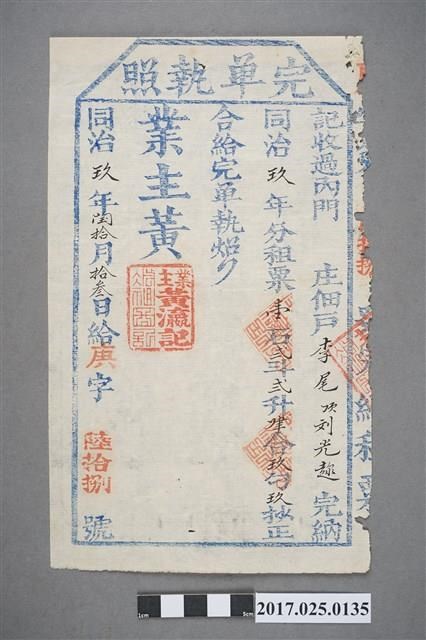 完單執照
記收過內門 庄佃戶李尾頂刘光趂完納
同治玖年分租票壹石弍斗弍升肆合玖勺玖抄正
合給完單執炤
業主黃
業主黃瀛記
同治玖年閏拾月拾叁日給庚字陸拾捌號
1cm
5cm
2017.025.0135